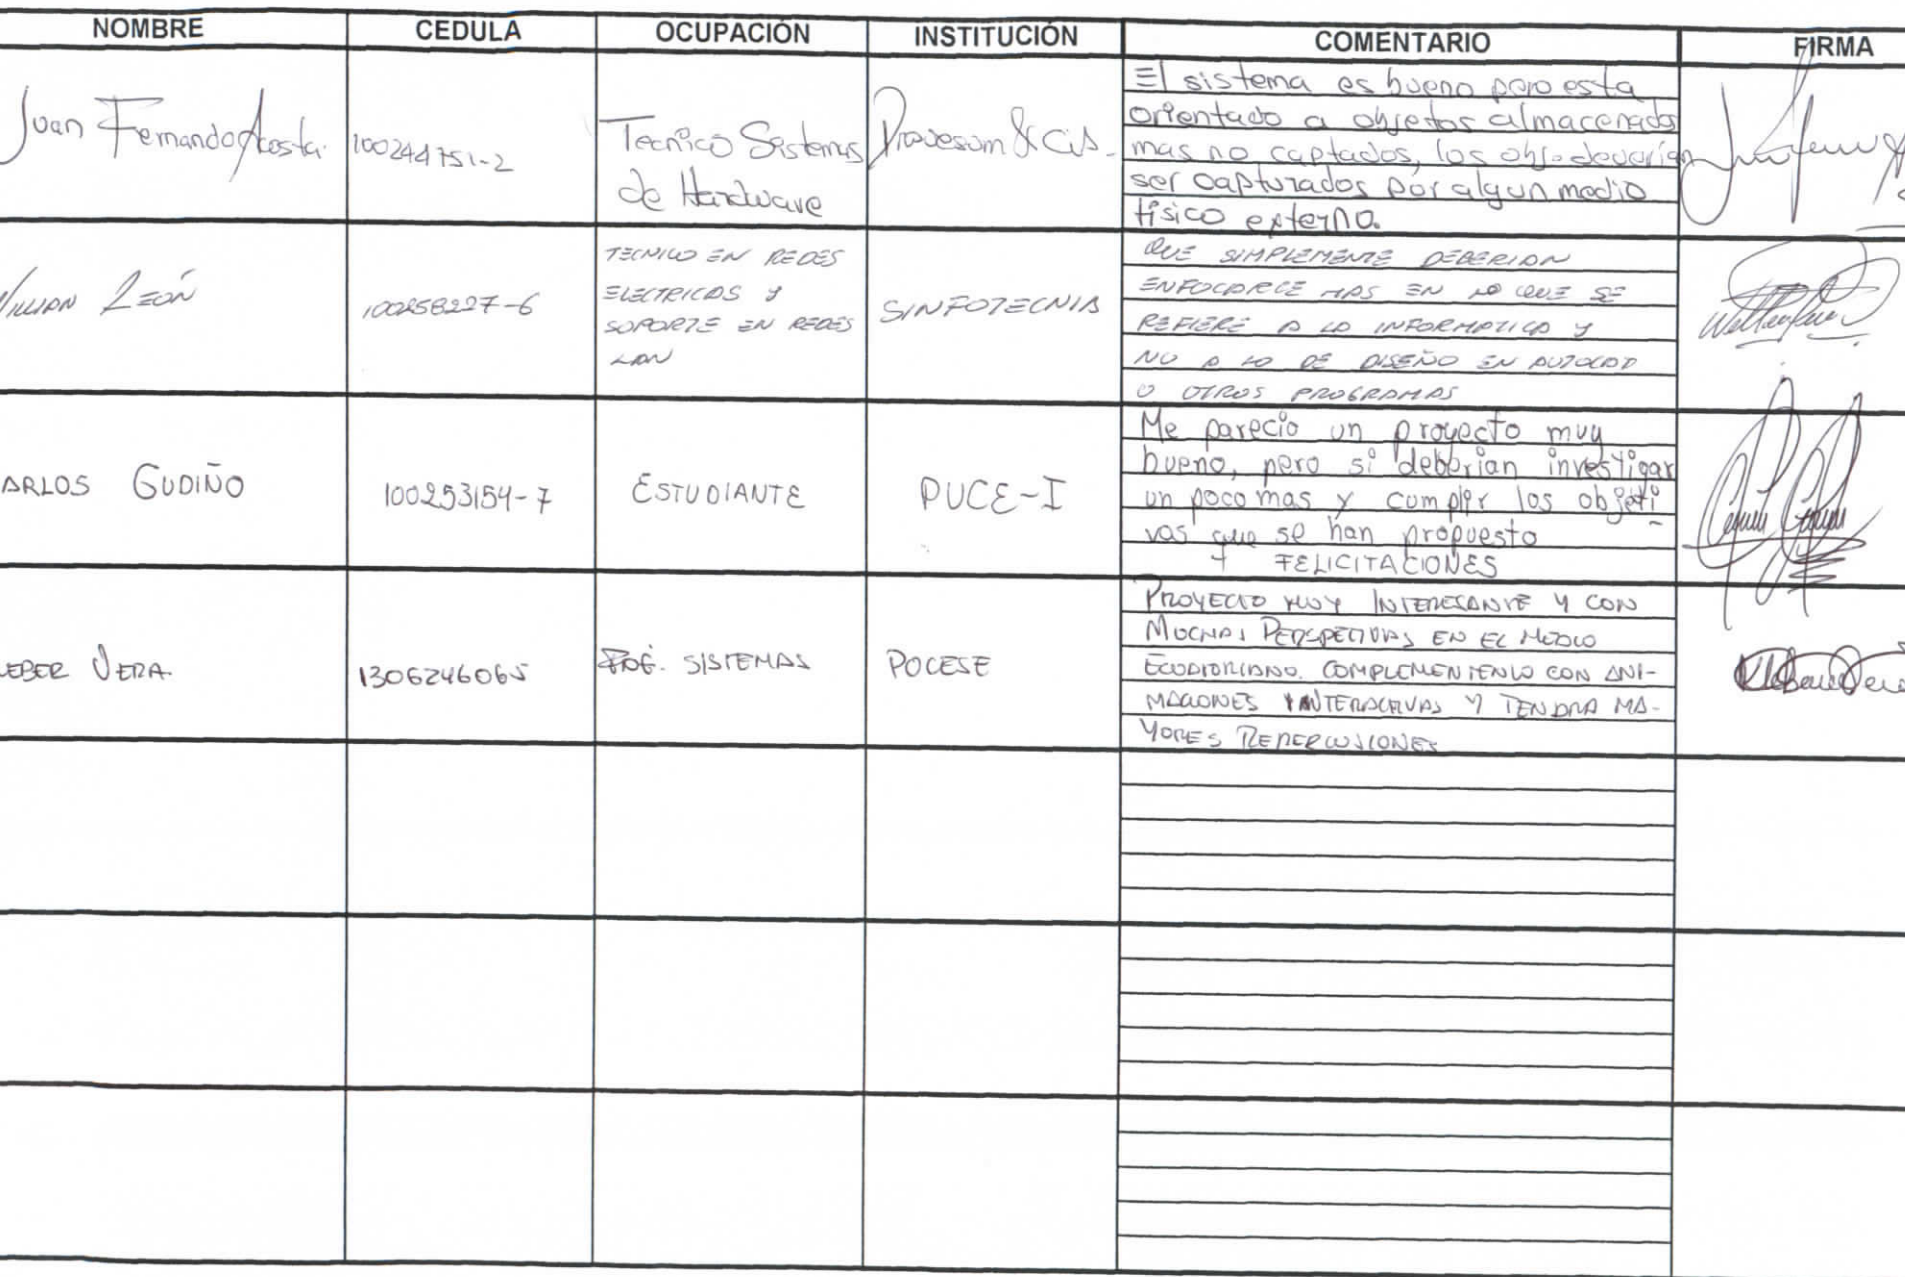 NOMBRE CEDULA OCUPACIÓN INSTITUCIÓN COMENTARIO FIRMA
Juan Fernando Acosta.
100244751-2
Tecnico Sistemas
de Hardware
El sistema es bueno pero esta
orientado a objetos almacenados
mas no captados, los obj. deverian
ser capturados por algun medio
fisico externo.
LEÓN
100258227-6
TECNICO EN REDES
ELECTRICAS Y
SOPORTE EN REDES
LAN
SINFOTECNIA
QUE SIMPLEMENTE DEBERIAN
ENFOCARCE MAS EN LO QUE SE
REFIERE A LA INFORMATICA Y
NO A LO DE DISEÑO EN AUTOCAD
O OTROS PROGRAMAS
ARLOS GUDIÑO
100253154-7
ESTUDIANTE
PUCE-I
Me parecio un proyecto muy
bueno, pero si deberian investigar
un poco mas y cumplir los objeti
vos que se han propuesto
+ FELICITACIONES
LEBER VERA
1306246065
PROF. SISTEMAS
PUCESE
PROYECTO MUY INTERESANTE Y CON
MUCHAS PERSPECTIVAS EN EL MEDIO
ECUATORIANO. COMPLEMENTENLO CON ANI-
MACIONES INTERACTIVAS Y TENDRA MA-
YORES REPERCUSIONES